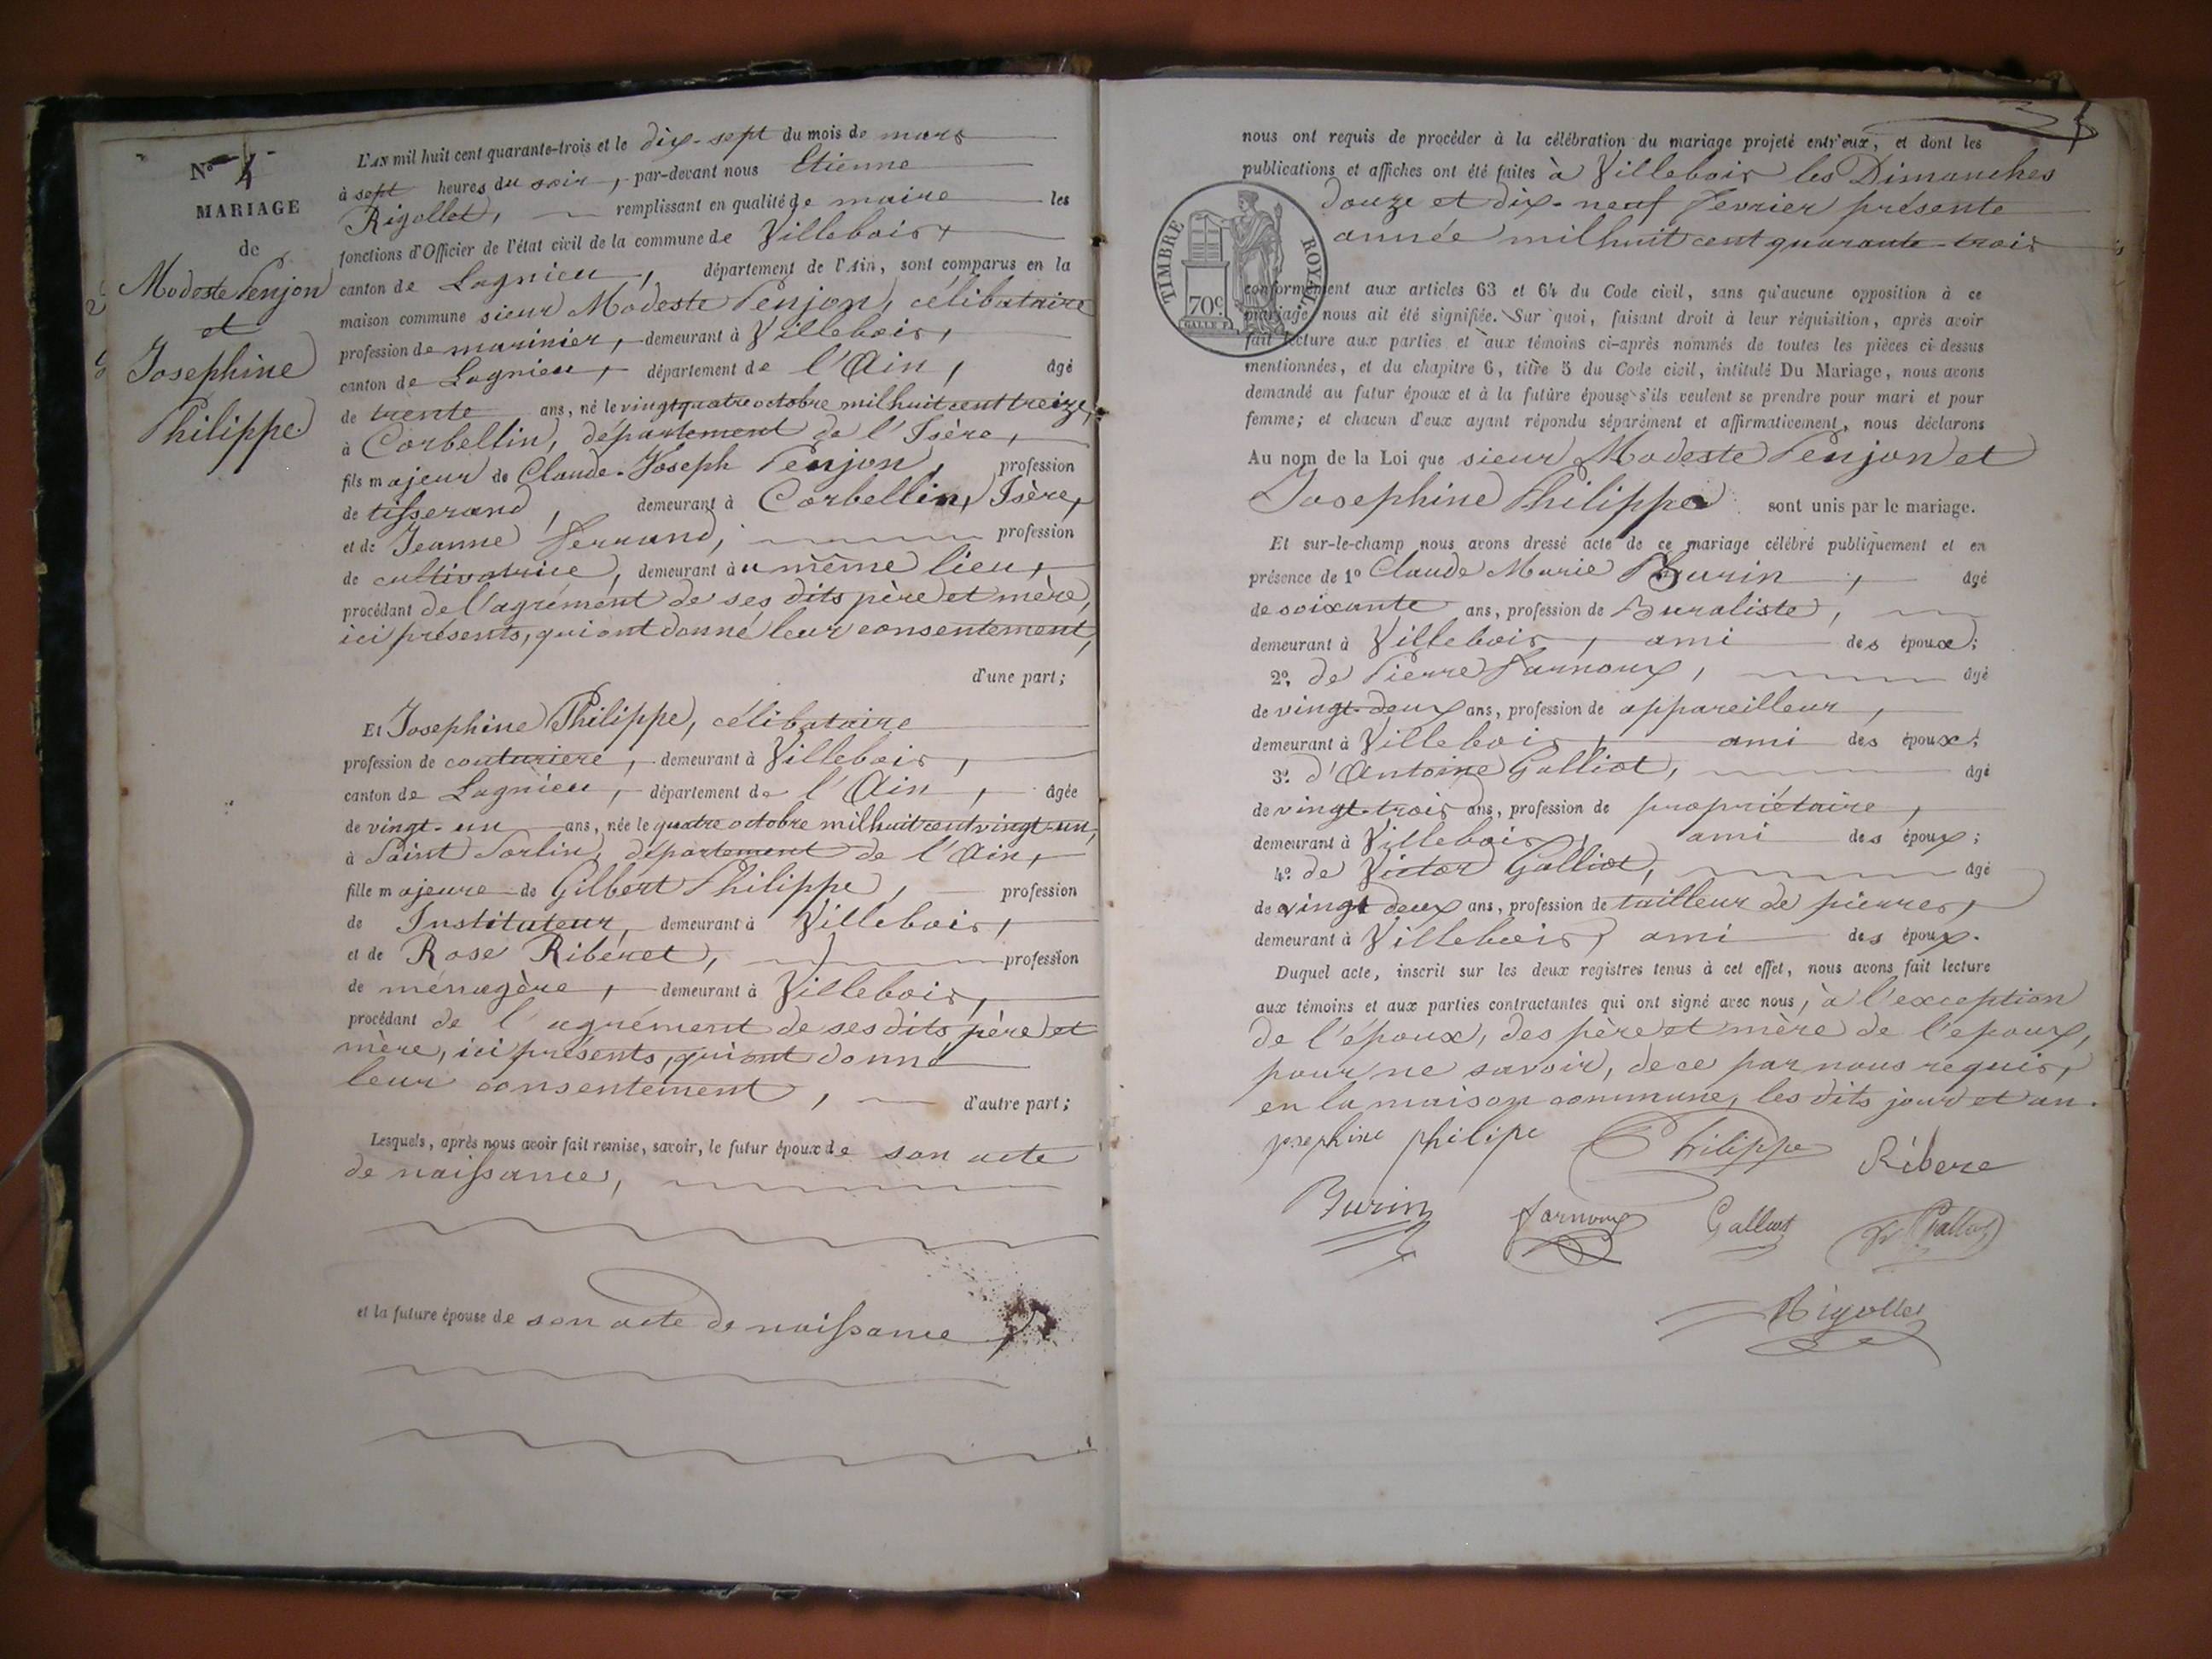 N° 4
MARIAGE
de
Modeste Penjon
et
Josephine
Philippe
L'AN mil huit cent quarante-trois et le dix-sept du mois de mars
à sept heures du soir, par-devant nous Etienne
Rigollet, remplissant en qualité de maire les
fonctions d'Officier de l'état civil de la commune de Villebois,
canton de Lagnieu, département de l'Ain, sont comparus en la
maison commune sieur Modeste Penjon, célibataire
profession de marinier, demeurant à Villebois,
canton de Lagnieu, département de l'Ain, âgé
de trente ans, né le vingtquatre octobre mil huit cent treize,
à Corbellin, département de l'Isère,
fils majeur de Claude-Joseph Penjon, profession
de tisserand, demeurant à Corbellin, Isère,
et de Jeanne Ferrand, profession
de cultivatrice, demeurant à u même lieu,
procédant de l'agrément de ses dits père et mère,
ici présents, qui ont donné leur consentement,
d'une part;
Et Josephine Philippe, célibataire
profession de couturiere, demeurant à Villebois,
canton de Lagnieu, département de l'Ain, âgée
de vingt-un ans, née le quatre octobre mil huit cent vingt-un,
à Saint Sorlin, département de l'Ain,
fille majeure de Gilbert Philippe, profession
de Instituteur, demeurant à Villebois,
et de Rose Riberet, profession
de ménagère, demeurant à Villebois,
procédant de l'agrément de ses dits père et
mère, ici présents, qui ont donné
leur consentement, d'autre part;
Lesquels, après nous avoir fait remise, savoir, le futur époux de son acte
de naissance,
et la future épouse de son acte de naissance
nous ont requis de procéder à la célébration du mariage projeté entr'eux, et dont les
publications et affiches ont été faites à Villebois les Dimanches
douze et dix-neuf fevrier présente
année mil huit cent quarante-trois
TIMBRE ROYAL
70c.
GALLE F.
conformément aux articles 63 et 64 du Code civil, sans qu'aucune opposition à ce
mariage nous ait été signifiée. Sur quoi, faisant droit à leur réquisition, après avoir
fait lecture aux parties et aux témoins ci-après nommés de toutes les pièces ci-dessus
mentionnées, et du chapitre 6, titre 5 du Code civil, intitulé Du Mariage, nous avons
demandé au futur époux et à la future épouse s'ils veulent se prendre pour mari et pour
femme; et chacun d'eux ayant répondu séparément et affirmativement, nous déclarons
Au nom de la Loi que sieur Modeste Penjon et
Josephine Philippe sont unis par le mariage.
Et sur-le-champ nous avons dressé acte de ce mariage célébré publiquement et en
présence de 1° Claude Marie Burin, âgé
de soixante ans, profession de Buraliste,
demeurant à Villebois, ami des époux;
2°. de Pierre Farnoux, âgé
de vingt-deux ans, profession de appareilleur,
demeurant à Villebois, ami des époux;
3°. d'Antoine Galliot, âgé
de vingt-trois ans, profession de propriétaire,
demeurant à Villebois, ami des époux;
4°. de Victor Galliot, âgé
de vingt deux ans, profession de tailleur de pierres,
demeurant à Villebois, ami des époux.
Duquel acte, inscrit sur les deux registres tenus à cet effet, nous avons fait lecture
aux témoins et aux parties contractantes qui ont signé avec nous, à l'exception
de l'époux, des père et mère de l'epoux,
pour ne savoir, de ce par nous requis,
en la maison commune, les dits jour et an.
josephine philipe Philippe Ribere
Burin Farnoux Galliot
Rigollet